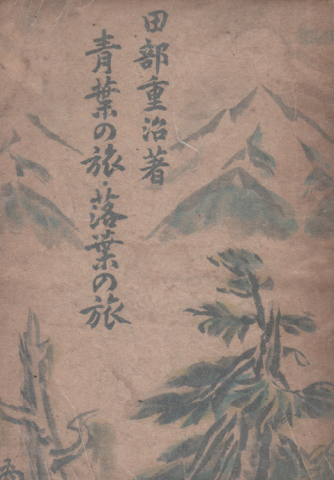 田部重治著
青葉の旅・落葉の旅